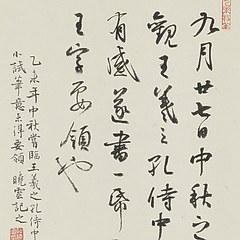 九月廿七日中秋之
觀王羲之孔侍中
有感遂書一帋
王字要領也
乙未年中秋嘗臨王羲之孔侍中
小試筆意未得要領 曉雲記之